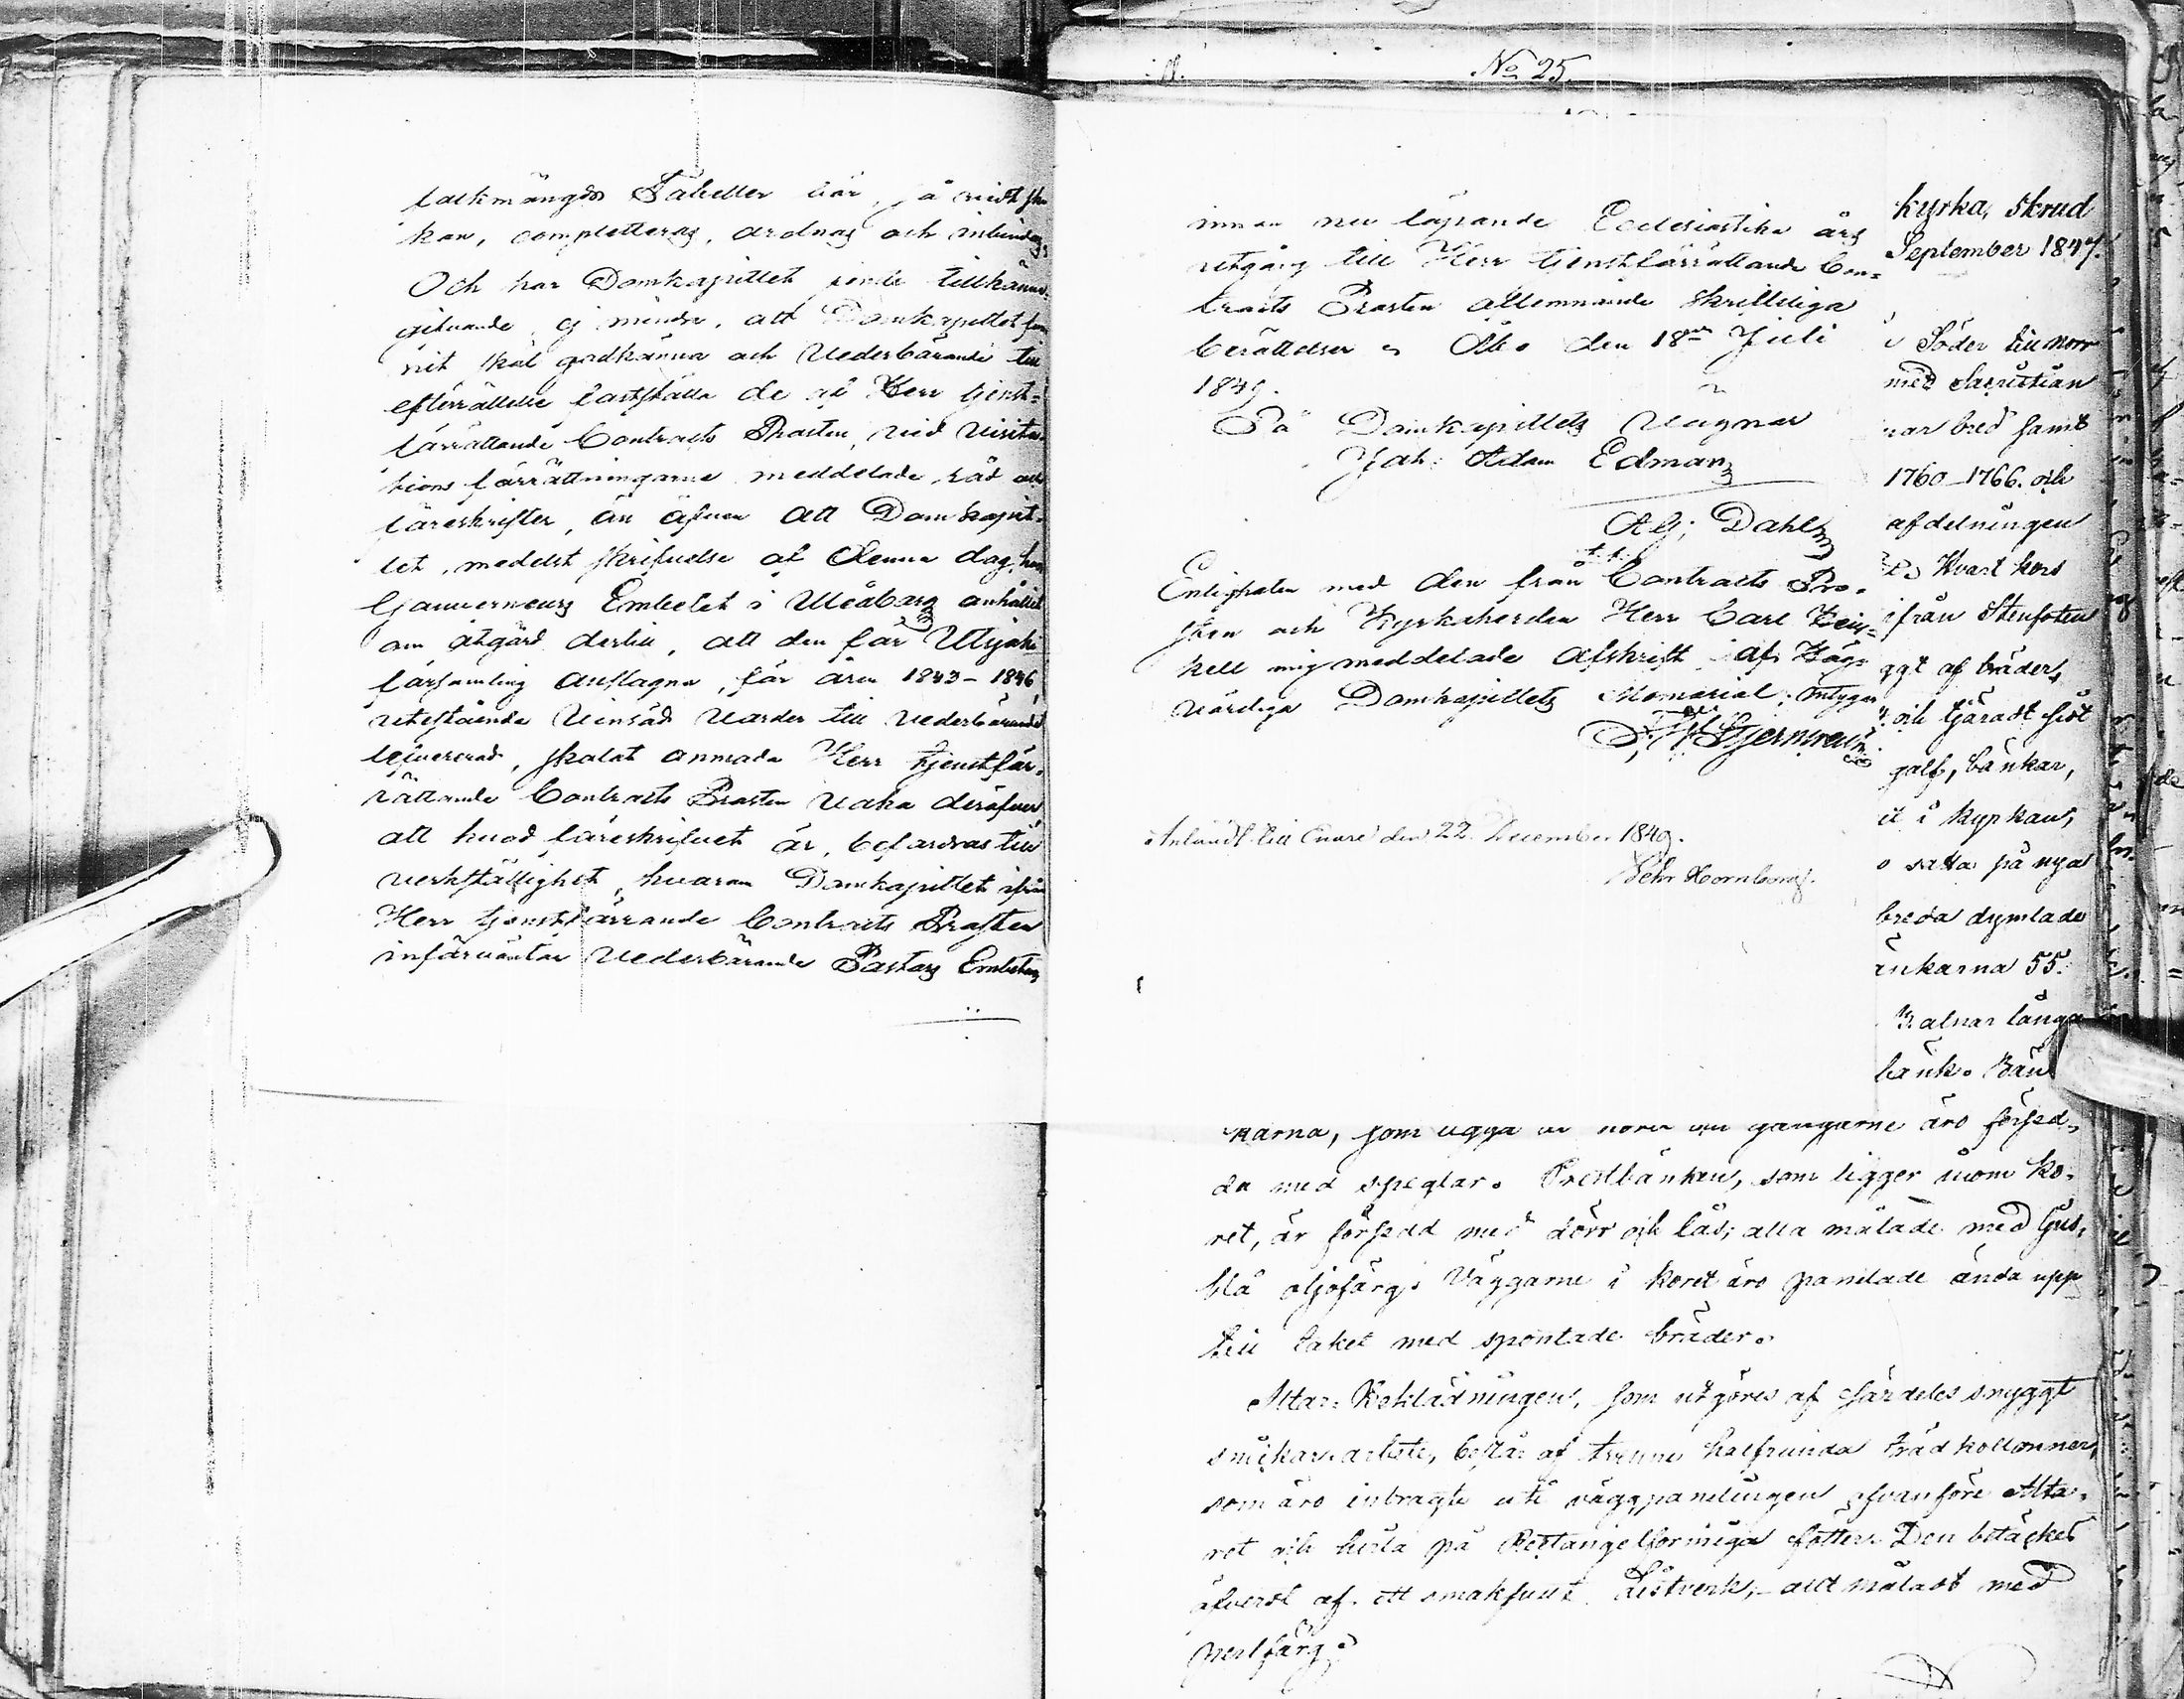 folkmängds Tabeller bör, så vidt ske
kan, completteras, ordnas och inbindas;
Och har Domkapitlet tillkänna-
gifvande, ej mindre, att Domkapitlet fun-
nit skäl godkänna och Vederbörande till
efterrättelse fastställa de af Herr tjenst-
förrättande Contracts Prosten, vid Visita-
tions förrättningarne meddelade, råd och
föreskrifter, än äfven att Domkapit-
let, medelst skrifvelse af denna dag, hos
Gouverneurs Embetet i Uleåborg anhållit
om åtgärd dertill, att den för Utsjoki
församling anslagna, för åren 1843-1846,
utestående Vinsäd varder till vederbörande
lefvererad, skolat anmoda Herr tjenstför-
rättande Contracts Prosten vaka deröfver,
att hvad föreskrifvet är, befordras till
verkställighet, hvarom Domkapitlet ifrån
Herr tjenstförrande Contracts Prosten
införväntar Vederbörande Pastors Embetens
No 25.
innan nu löpande Ecclesiastike års
utgång till Herr tjenstförrättande Con-
tracts Prosten aflemnande skriftliga
berättelser. Åbo den 18de Juli
1849.
På Domkapitlets Vägnar
Joh: Adam Edman
Alg: Dahl
t. f.
Enligheten med den från Contracts Pro-
sten och Kyrkoherden Herr Carl
kell mig meddelade afskrift af Hög-
värdiga Domkapitlets Memorial; intygar
Anländt till Enare den 22 December 1849.
kyrka, skrud
September 1847.
Söder till norr
med Sacristian
nar bred samt
1760-1766. och
afdelningen
Hvart kors
ifrån Stenfoten
ggt af bräder,
och tjäradt sist
golf, bänkar,
it i kyrkan,
o satta på nya
breda dymlade
änkarna 55.
alnar långa
bänk. Bän
karna, som ligga gangarne äro försed-
da med speglar. Prestbänken, som ligger inom ko-
ret, är försedd med dörr och lås; alla målade med ljus-
blå oljofärg. Väggarne i koret äro panelade ända upp
till taket med spontade bräder.
Altar-Beklädningen, som utgöres af särdeles snyggt
snickar-arbete, består af trenne halfrunda träd kollonner,
som äro inbragte uti väggpanelingen ofvanföre Alta-
ret och hvila på Rectangelformiga fötter. Den betäckes
öfverst af ett smakfullt Listverk, allt måladt med
perlfärg.